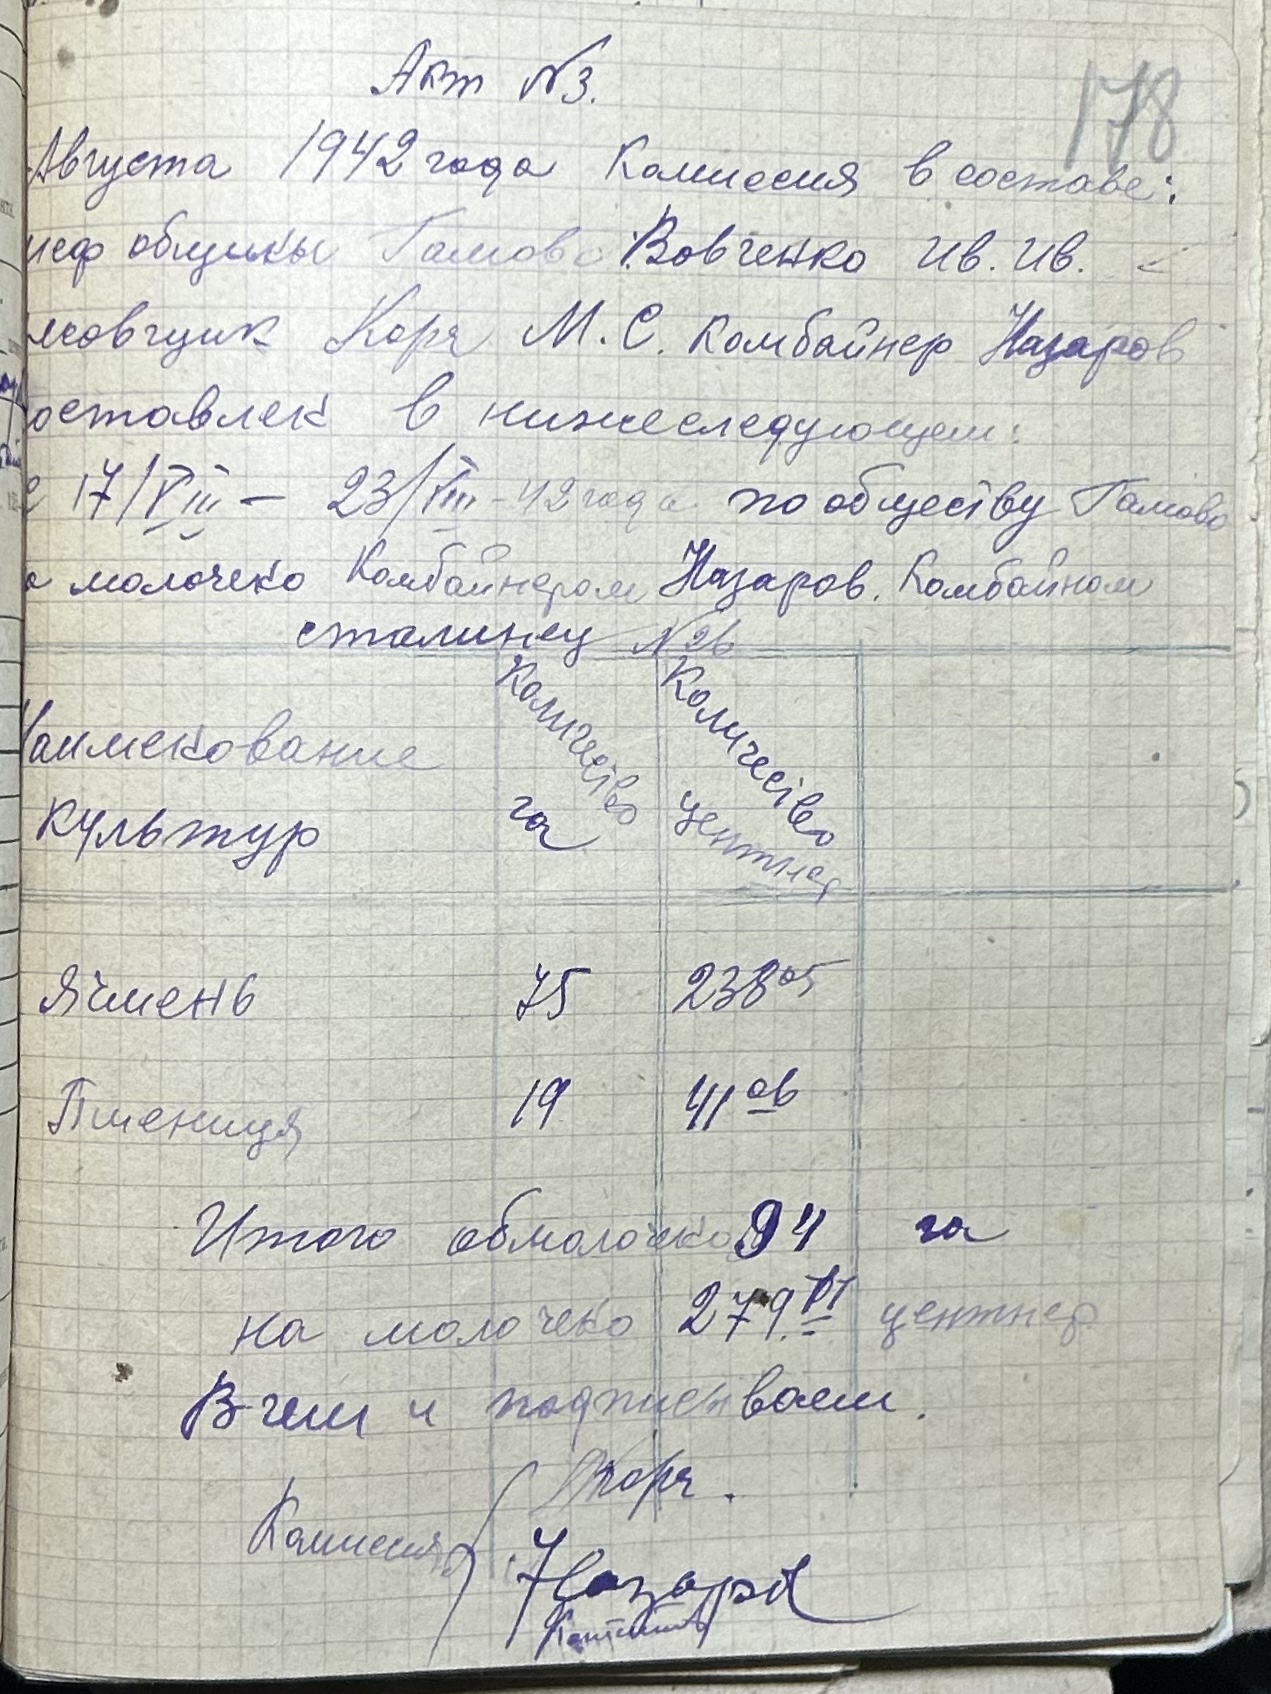 Акт №3.
178
Августа 1942 года Комиссия в составе:
шеф общины Гамово Вовченко Ив. Ив.
совщик Корч М.С. Комбайнер Назаров
оставлен в нижеследующем:
с 17/VIII – 23/VIII-42 года по обществу Гамово
о молочено Комбайнером Назаров. Комбайном
сталинец №26
Наименование
культур
Количество
га
Количество
центнер
Ячмень 75 238 05
Пшениця 19 41 06
Итого обмолочено 94 га
на молочено 279. 11 центнер
В чем и подписваем.
Комиссия
Корч.
Назаров